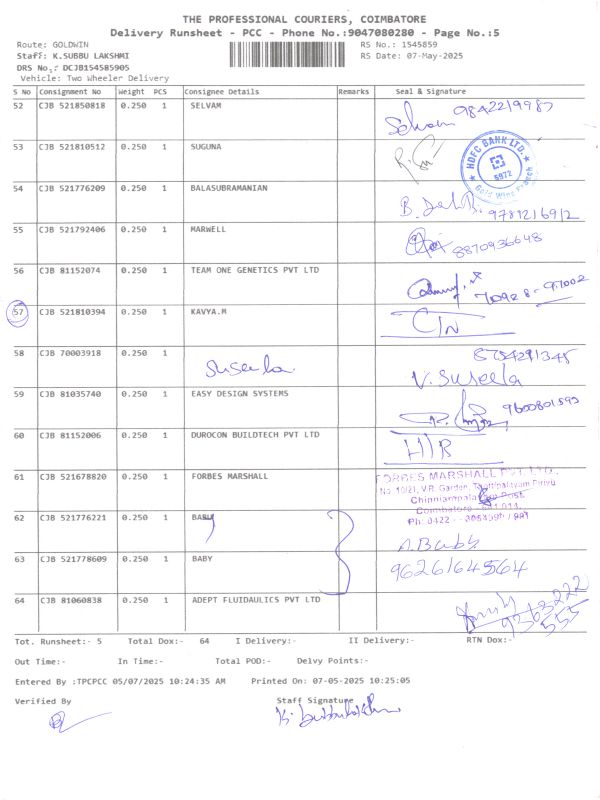 THE PROFESSIONAL COURIERS, COIMBATORE
Delivery Runsheet - PCC - Phone No.:9047080280 - Page No.:5
Route: GOLDWIN RS No.: 1545859
Staff: K.SUBBU LAKSHMI RS Date: 07-May-2025
DRS No.: DCJB154585905
Vehicle: Two Wheeler Delivery
S No Consignment No Weight PCS Consignee Details Remarks Seal & Signature
52 CJB 521850818 0.250 1 SELVAM Selvam 9842219987
53 CJB 521810512 0.250 1 SUGUNA
HDFC BANK LTD.
5972
54 CJB 521776209 0.250 1 BALASUBRAMANIAN
55 CJB 521792406 0.250 1 MARWELL 8870936648
56 CJB 81152074 0.250 1 TEAM ONE GENETICS PVT LTD
57 CJB 521810394 0.250 1 KAVYA.M
58 CJB 70003918 0.250 1 Suseela V. Suseela
59 CJB 81035740 0.250 1 EASY DESIGN SYSTEMS
60 CJB 81152006 0.250 1 DUROCON BUILDTECH PVT LTD
61 CJB 521678820 0.250 1 FORBES MARSHALL FORBES MARSHALL PVT. LTD.
No. 10/21, V.R. Garden,
Coimbatore - 641 014.
62 CJB 521776221 0.250 1 BABY A. Baby
63 CJB 521778609 0.250 1 BABY 9626164564
64 CJB 81060838 0.250 1 ADEPT FLUIDAULICS PVT LTD 9363222
555
Tot. Runsheet:- 5 Total Dox:- 64 I Delivery:- II Delivery:- RTN Dox:-
Out Time:- In Time:- Total POD:- Delvy Points:-
Entered By :TPCPCC 05/07/2025 10:24:35 AM Printed On: 07-05-2025 10:25:05
Verified By Staff Signature